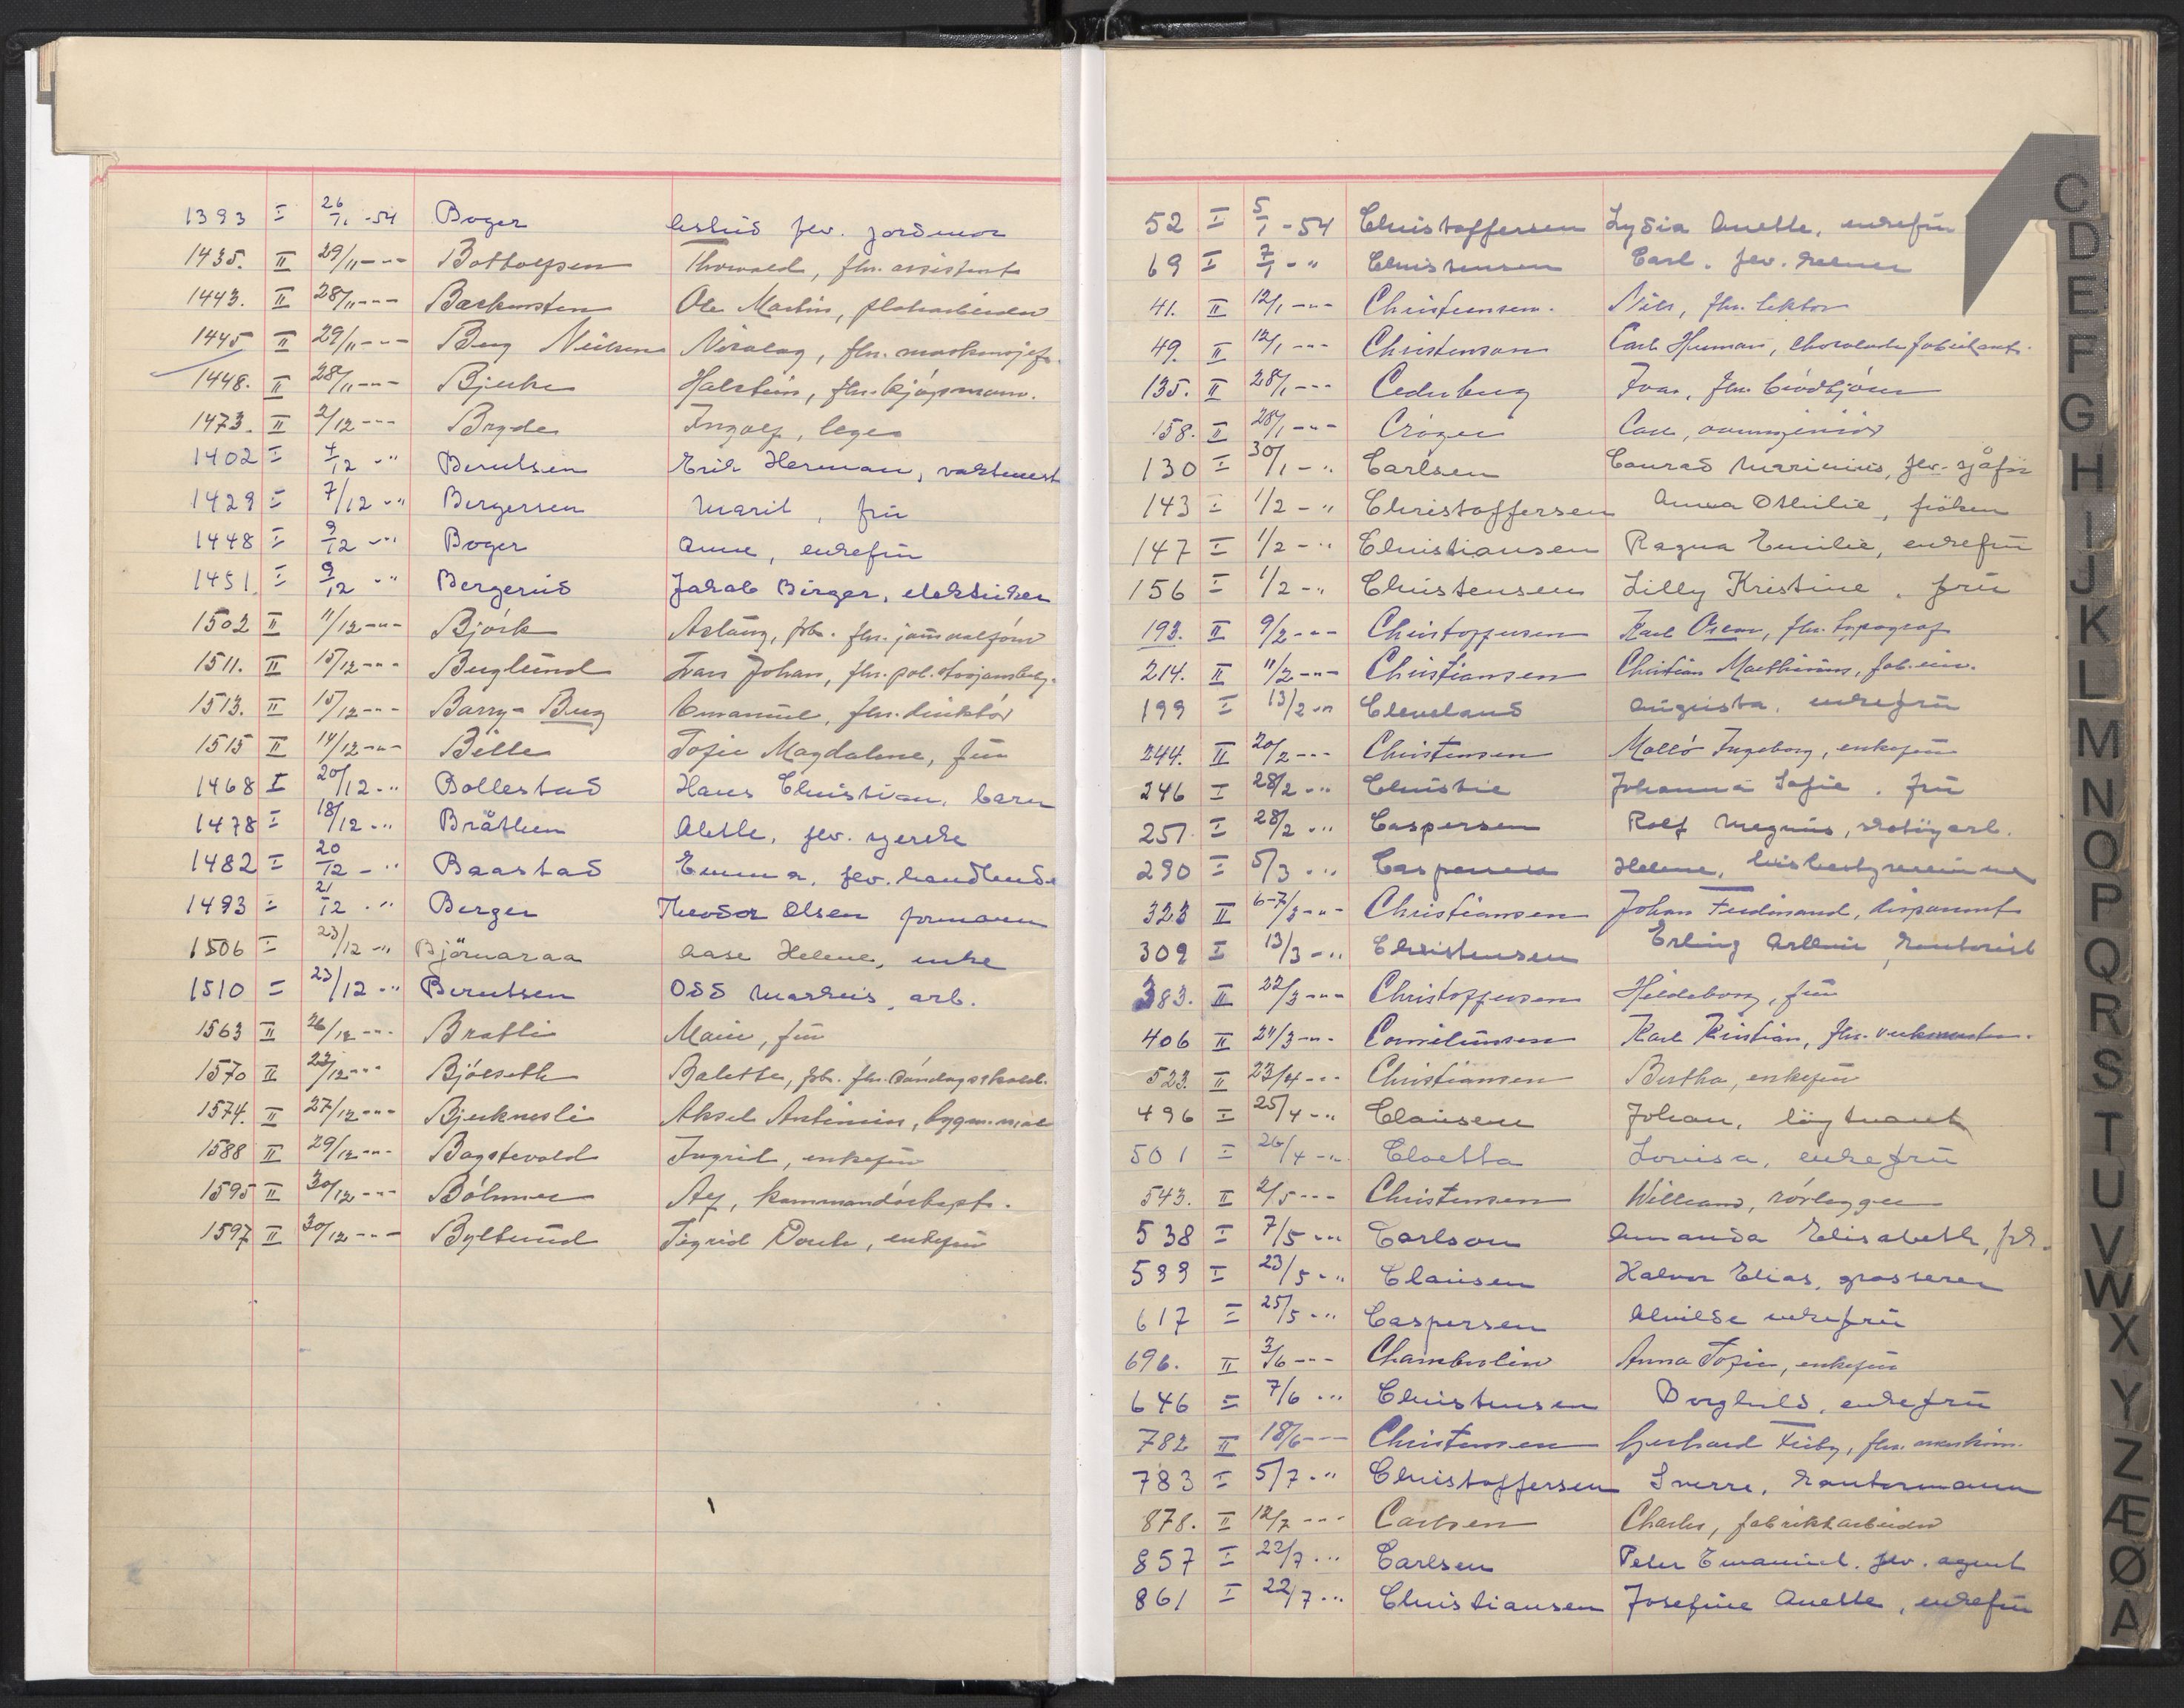 1393 I 26/11 -54 Boger Astrid fev. jordmor
1435. II 29/11 -"- Bottolfsen Thorvald, fhv. assistent
1443. II 28/11 -"- Ole Martin,
1445 II 29/11 -"- Berg Nielsen Nicolay, fhv.
1448. II 28/11 -"- Bjerke Halstein, fhv. kjøpmann.
1473. II 2/12 -"- Bryde Ingolf, lege
1402 I 4/12 -" Berntsen Erik Herman, vaktmest
1429 I 7/12 -" Bergersen Marit, frü
1448 I 9/12 -" Boger Anne, enkefrü
1451 I 9/12 -" Bergerud Jakob Birger, elektriker
1502 II 11/12 -"- Björk Aslaug, frk. fhv.
1511. II 15/12 -"- Berglünd Ivar Johan, fhv. pol.
1513. II 15/12 -"- Barry-Berg Emanuel, fhv. direktör
1515 II 14/12 -"- Bille Sofie Magdalene, frü
1468 I 20/12 -" Bollestad Hans Christian, barn
1478 I 18/12 -" Bråthen Alette, fev. syerske
1482 I 20/12 -" Baastad Emma, fev. handlende
1493 I 21/12 -" Berger Theodor Olsen formann
1506 I 23/12 -" Björnaraa Aase Helene, enke
1510 I 23/12 -" Berntsen Odd Markus, arb.
1563 II 26/12 -"- Bratli Marie, frü
1570 II 23/12 -"- Bjölseth Balette, frk. fhv.
1574. II 27/12 -"- Bjerknesli Aksel Antinius, byggm.
1588 II 29/12 -"- Bagstevold Ingrid, enkefrü
1595 II 30/12 -"- Böhmer Alf, kommandörkapt.
1597 II 30/12 -"- Byltünd Sigrid Dorth, enkefrü
52 I 5/1 -54 Christoffersen Lydia Anette, enkefrü
69 I 7/1 -" Christensen Carl. fev. kelner
41. II 12/1 -"- Christensen. Nils, fhv. lektor
49. II 12/1 -"- Christensen Carl Herman, chocoladefabrikant.
135. II 28/1 -"- Cederberg Ivar, fhv. brödkjörer
158. II 28/1 -"- Cröger Carl,
130 I 30/1 -" Carlsen Conrad Marinius, fev. sjåför
143 I 1/2 -" Christoffersen Anna Othilie, fröken
147 I 1/2 -" Christiansen Ragna Emilie, enkefrü
156 I 1/2 -" Christensen Lilly Kristine, frü
193. II 9/2 -"- Christoffersen Karl Oscar, fhv. typograf
214. II 11/2 -"- Christiansen Christian Matthinius, fab. eier.
199 I 13/2 -" Cleveland Augusta, enkefrü
244. II 20/2 -"- Christensen Ingeborg, enkefrü
246 I 28/2 -" Christie Johanna Sofie, frü
251. I 28/2 -" Caspersen Rolf Magnus, skotöyarb.
290 I 5/3 -" Caspersen Helene, husbestyrerinne
323 II 6-7/3 -"- Christiansen Johan Ferdinand, disponent
309 I 13/3 -" Christensen Erling Arthur, kontorist
383. II 22/3 -"- Christoffersen Hildeborg, frü
406 II 24/3 -"- Corneliussen Karl Kristian, fhv.
523. II 23/4 -"- Christiansen Bertha, enkefrü
496 I 25/4 -" Clausen Johan, löytnant
501 I 26/4 -" Cloetta Lovisa, enkefrü
543. II 2/5 -"- Christensen William, rörlegger
538 I 7/5 -" Carlson Amanda Elisabeth, frk.
599 I 23/5 -" Clausen Halvor Elias, grosserer
617 I 25/5 -" Caspersen Alvilde enkefrü
696. II 3/6 -"- Chamberlin Anna Sofie, enkefrü
646 I 7/6 -" Christensen Borghild, enkefrü
782 II 18/6 -"- Christensen Gerhard
783 I 5/7 -" Christoffersen Sverre, kontormann
878. II 12/7 -"- Carlsen Charles, fabrikkarbeider
857 I 22/7 -" Carlsen Peter Emanuel. fev. agent
861 I 22/7 -" Christiansen Josefine Anette, enkefrü
C
D
E
F
G
H
I
J
K
L
M
N
O
P
Q
R
S
T
U
V
W
X
Y
Z
Æ
Ø
A